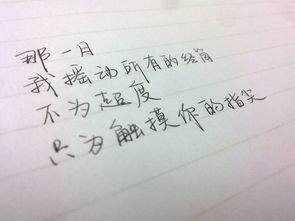 那一月
我摇动所有的经筒
不为超度
只为触摸你的指尖